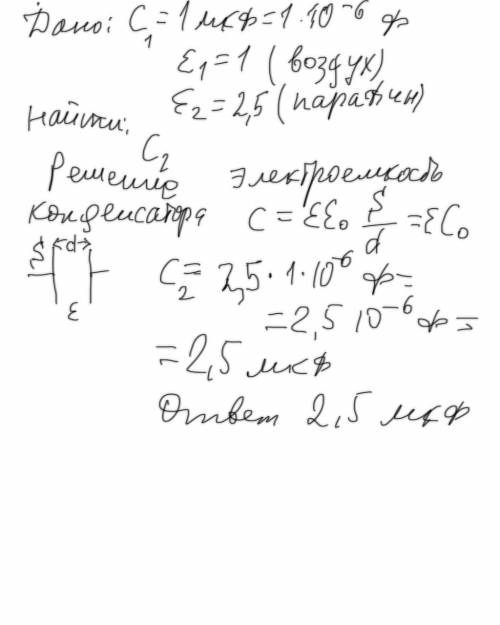 Дано: C₁ = 1 мкф = 1·10⁻⁶ ф
ε₁ = 1 (воздух)
ε₂ = 2,5 (парафин)
Найти:
C₂
Решение Электроемкость
конденсатора C = εε₀ S/d = εC₀
S d
ε
C₂ = 2,5·1·10⁻⁶ ф =
= 2,5 10⁻⁶ ф =
= 2,5 мкф
Ответ 2,5 мкф